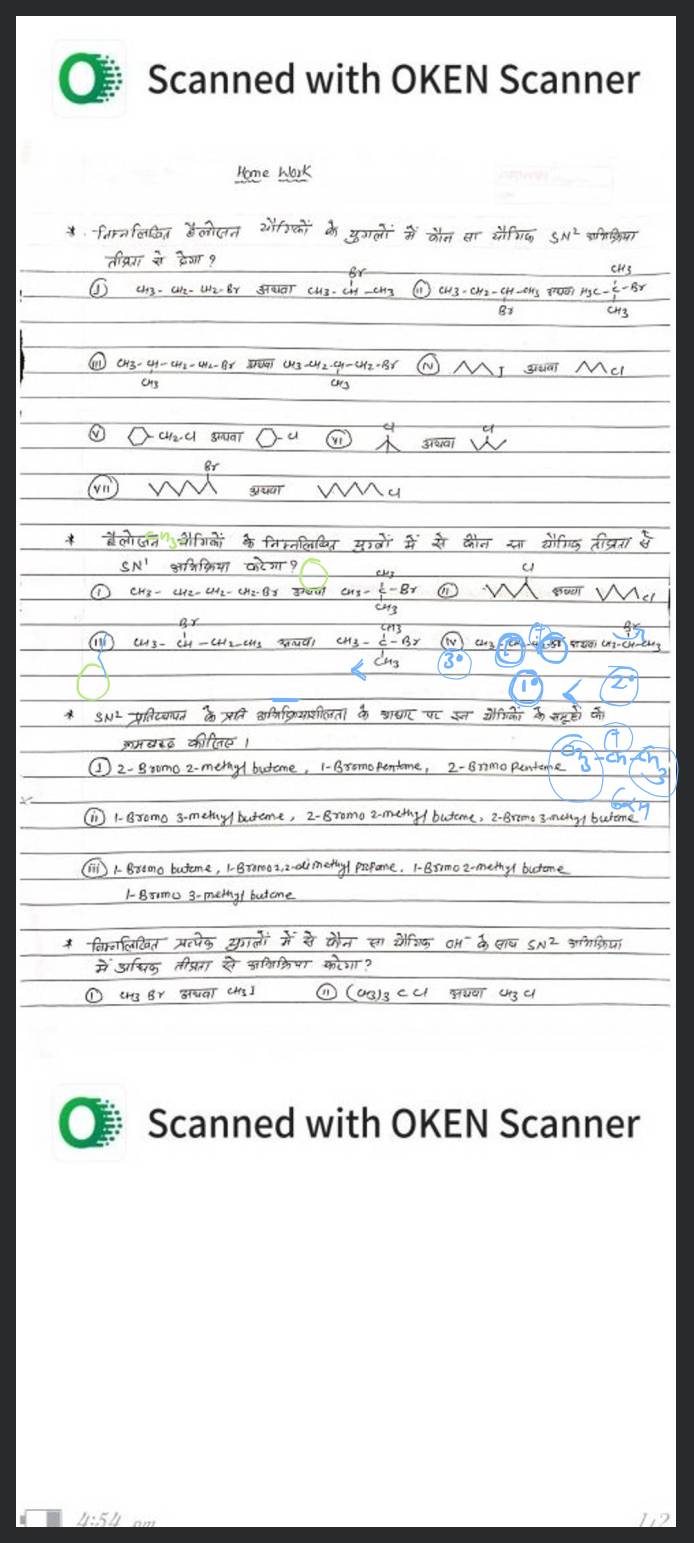 Scanned with OKEN Scanner
Home Work
* निम्नलिखित हैलोजन यौगिकों के युगलों में कौन सा यौगिक SN² अभिक्रिया
तीव्रता से देगा ?
Br CH3
(I) CH3- CH2- CH2-Br अथवा CH3- CH -CH3 (II) CH3-CH2-CH-CH3 अथवा H3C-C-Br
Br CH3
(III) CH3- CH-CH2-CH2-Br अथवा CH3-CH2-CH-CH2-Br (IV) I अथवा Cl
CH3 CH3
Cl Cl
(V) CH2-Cl अथवा Cl (VI) अथवा
Br
(VII) अथवा Cl
* हैलोजन यौगिकों के निम्नलिखित युग्लों में से कौन सा यौगिक तीव्रता से
SN¹ अभिक्रिया करेगा ?
CH3 Cl
(I) CH3- CH2-CH2-CH2-Br अथवा CH3-C-Br (II) अथवा Cl
CH3
Br CH3 Br
(III) CH3-CH-CH2-CH3 अथवा CH3-C-Br (IV) CH3 अथवा CH2-CH-CH3
CH3
< 3° 1° < 2°
* SN² प्रतिस्थापन के प्रति अभिक्रियाशीलता के आधार पर इन यौगिकों के समूहों को
क्रमबद्ध कीजिए ।
(I) 2-Bromo 2-methyl butane, 1-Bromopentane, 2-Bromo Pentane
CH3-CH-CH3
(ii) 1-Bromo 3-methyl butane, 2-Bromo 2-methyl butane, 2-Bromo 3-methyl butane
(iii) 1-Bromo butane, 1-Bromo2,2-dimethyl propane, 1-Bromo 2-methyl butane
1-Bromo 3-methyl butane
* निम्नलिखित प्रत्येक युगलों में से कौन सा यौगिक OH⁻ के साथ SN² अभिक्रिया
में अधिक तीव्रता से अभिक्रिया करेगा?
(I) CH3 Br अथवा CH3 I (II) (CH3)3 C Cl अथवा CH3 Cl
Scanned with OKEN Scanner
4:54 pm